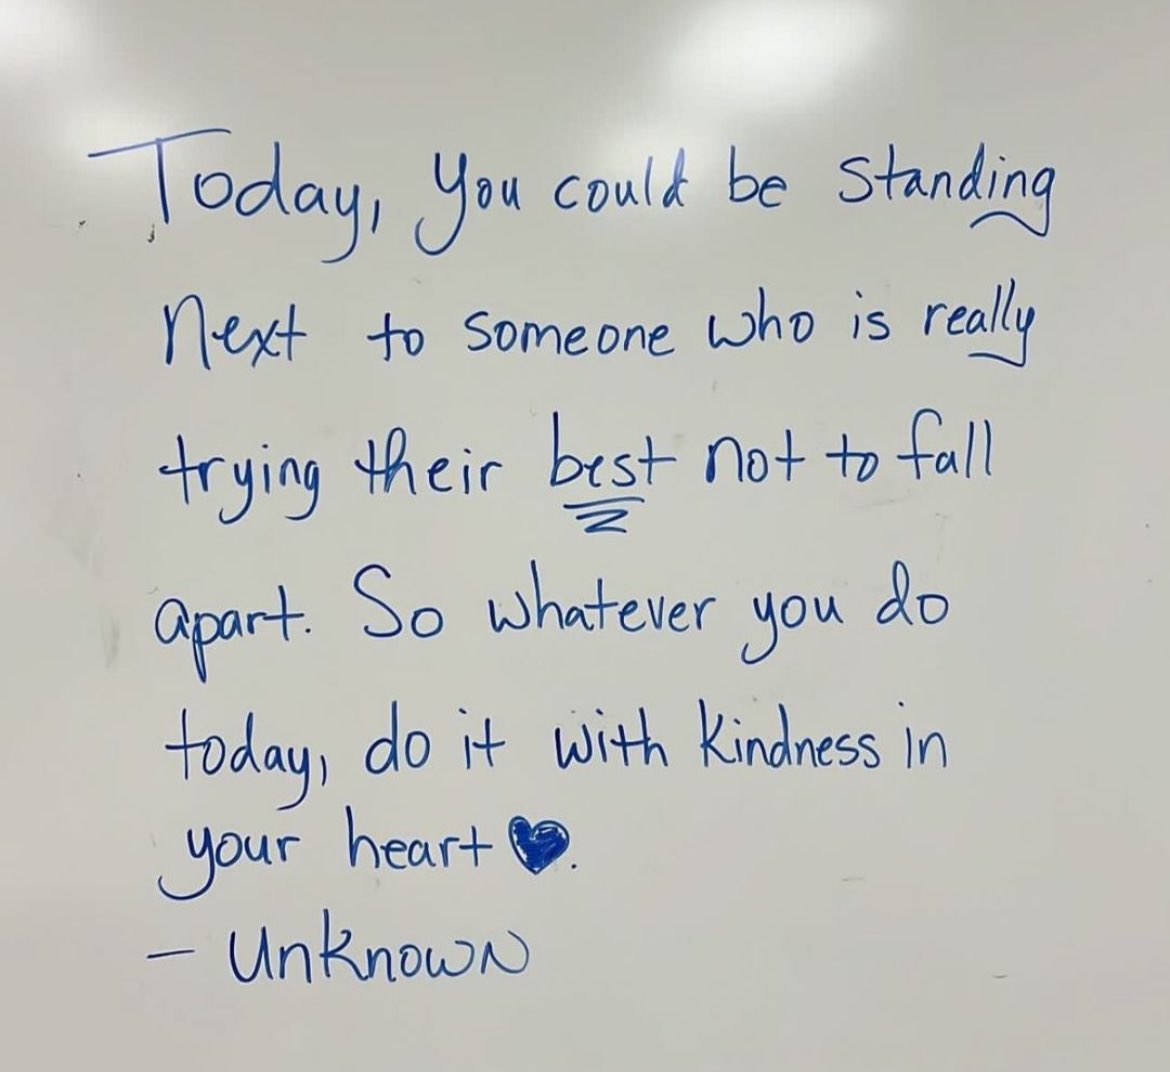 Today, you could be standing
next to someone who is really
trying their best not to fall
apart. So whatever you do
today, do it with kindness in
your heart ♥.
- Unknown